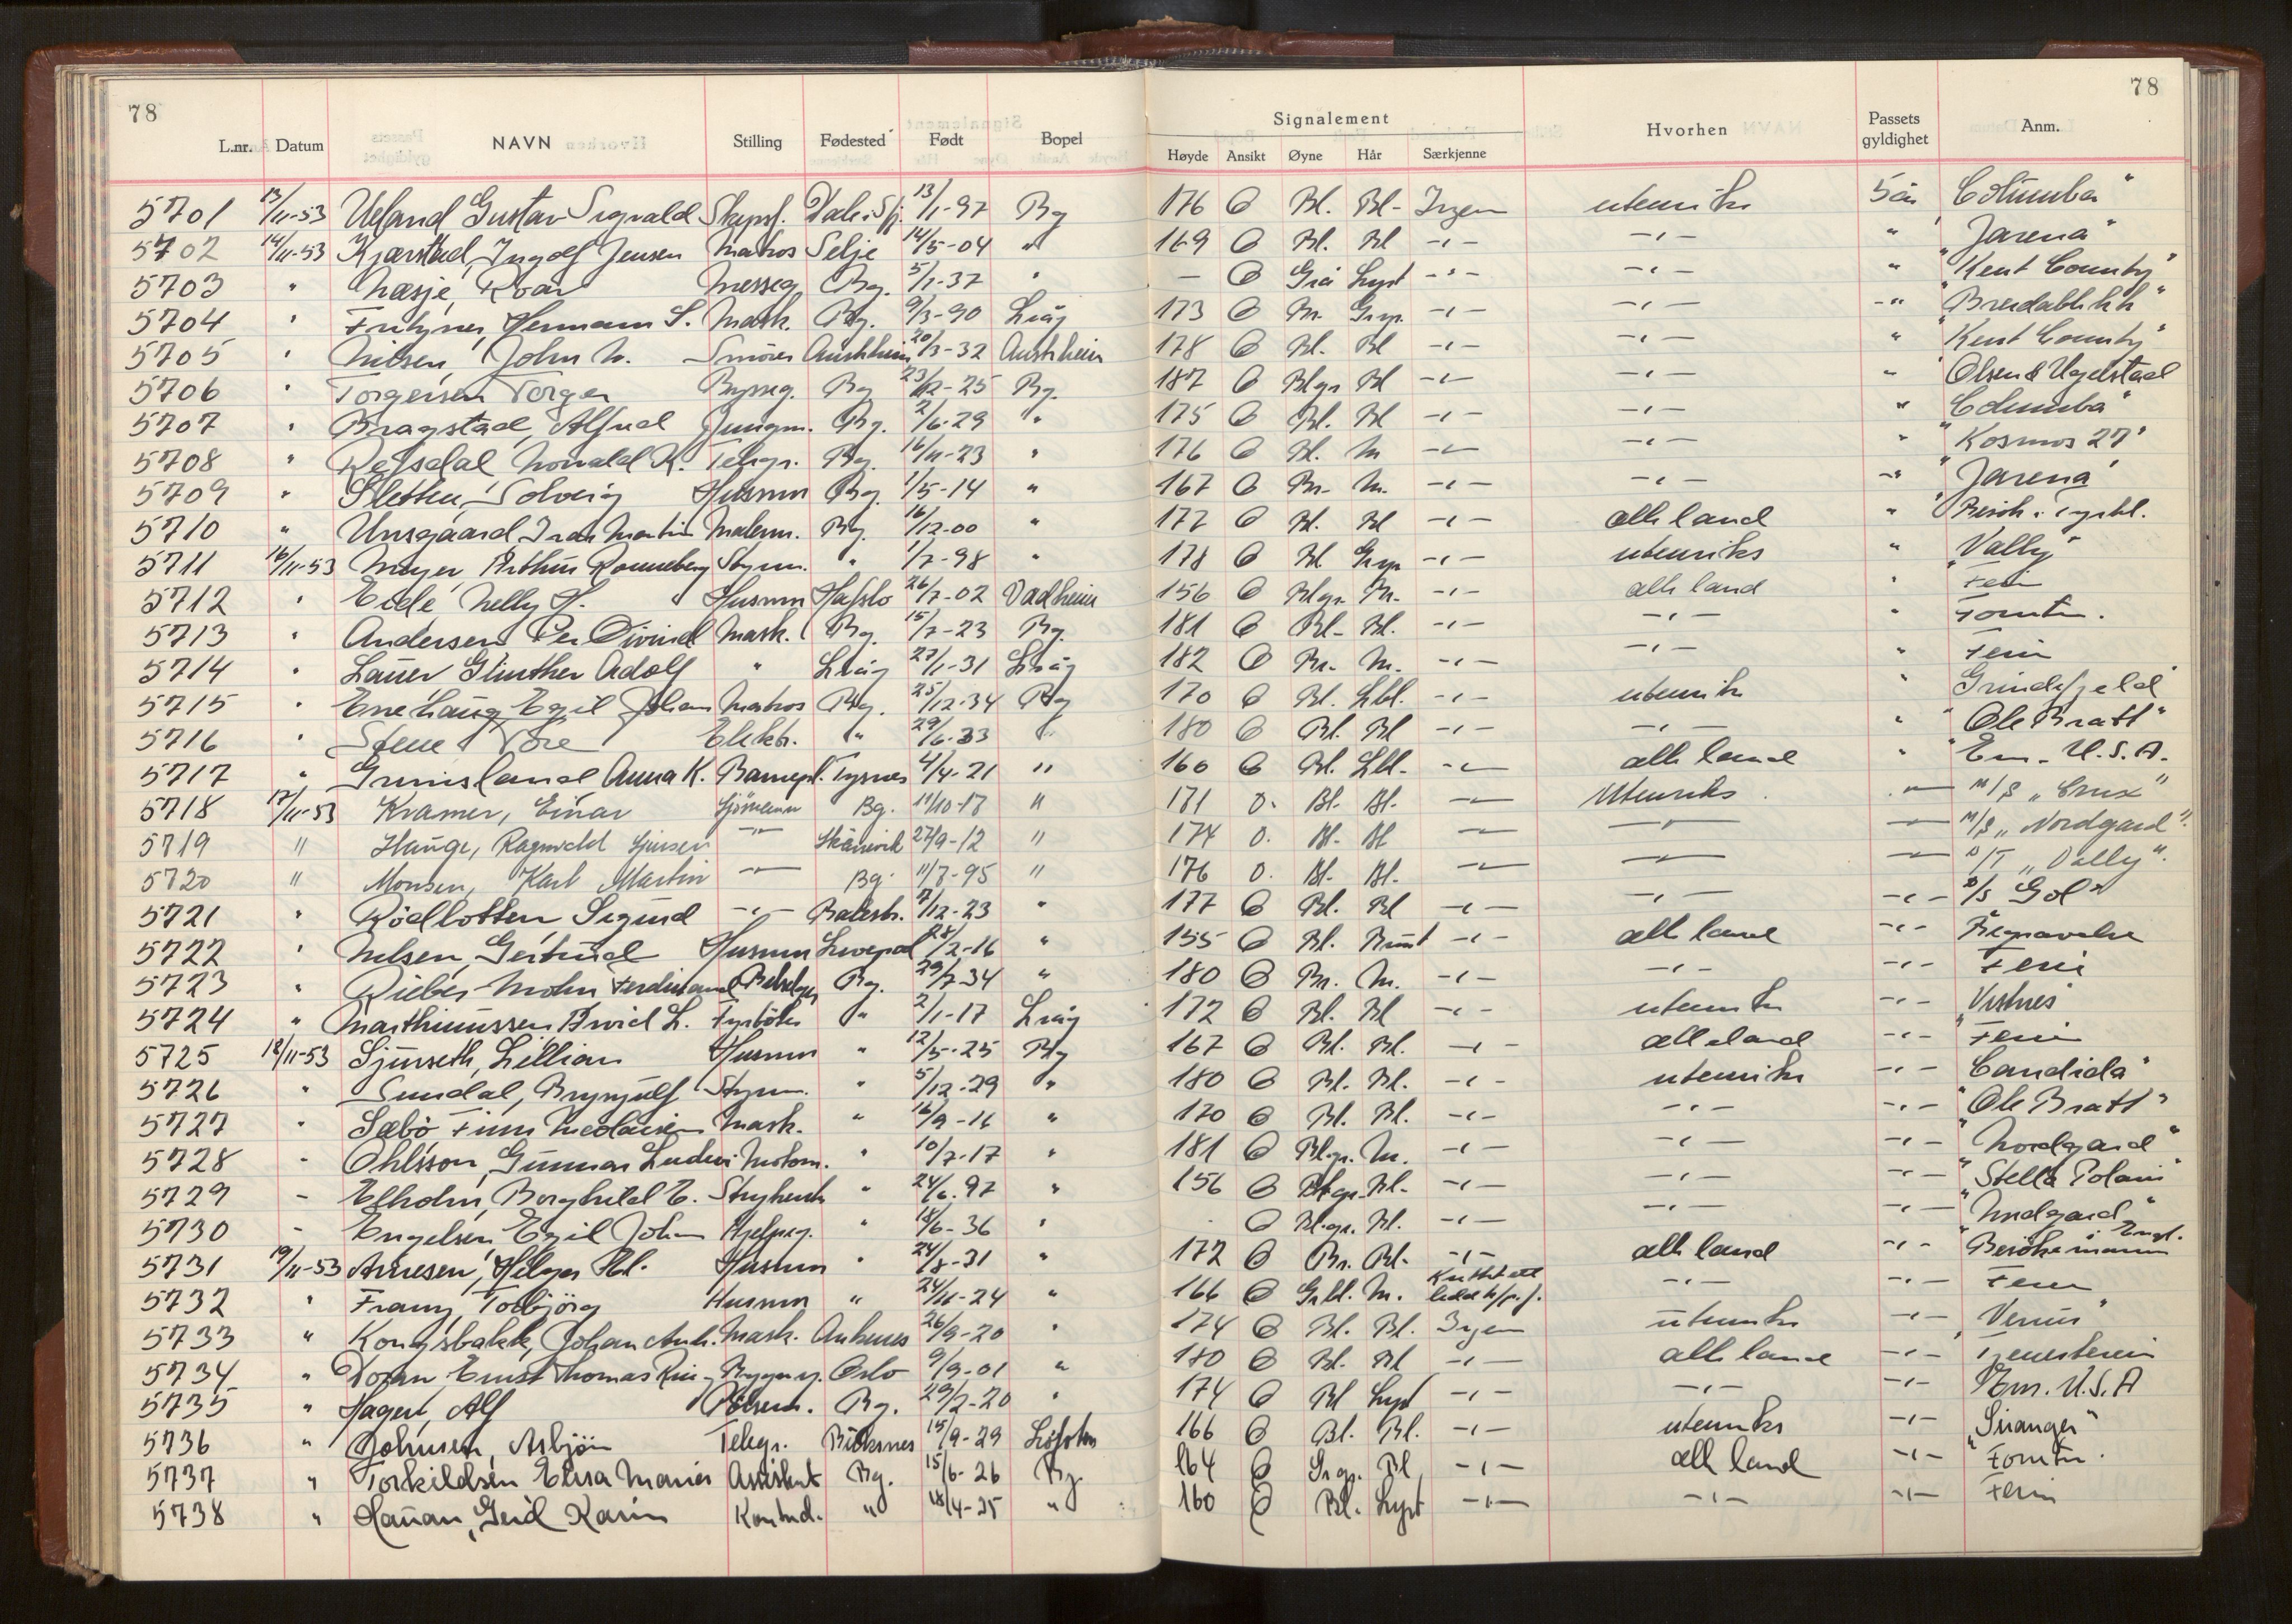 78 78
Signalement
L.nr. Datum NAVN Stilling Fødested Født Bopel Høyde Ansikt Øyne Hår Særkjenne Hvorhen Passets gyldighet Anm.
5701 13/11-53 Ueland Gustav Sigvald Skipsf. Dale i Sfj. 13/1-97 Bg 176 O Bl. Bl- Ingen utenriks 5 år "Columba"
5702 14/11-53 Kjærstad, Ingolf Jensen Matros Selje 14/5-04 " 169 O Bl. Bl -"- -"- " "Jarena"
5703 " Næsje, Roar Messeg. Bg. 5/1-37 " - O Grå Lyst -"- -"- " "Kent County"
5704 " Hermann S. Mask. Bg. 9/3-90 Lvåg 173 O Br. Grspr. -"- -"- -"- "Breidablikk"
5705 " Nilsen, John N. Smører Austrheim 20/3-32 Austrheim 178 O Bl. Bl -"- -"- " "Kent County"
5706 " Torgersen Torger Bysseg. Bg 23/12-25 Bg. 187 O Blgr Bl -"- -"- " Olsen & Ugelstad
5707 " Bragstad, Alfred Jungm. Bg. 2/6-29 " 175 O Bl. Bl -"- -"- " "Columba"
5708 " Refsdal Norvald K. Telegr. Bg. 16/11-23 " 176 O Bl. M -"- -"- " "Kosmos 27"
5709 " Sletten, Solveig Husmor Bg. 1/5-14 " 167 O Br. M. -"- -"- -"- "Jarena"
5710 " Unsgaard Ivar Martin Malerm. Bg. 16/12-00 " 177 O Bl. Bl -"- alle land " Besøk i Tyskl.
5711 16/11-53 Meyer, Arthur Ronneberg Styrm. " 1/7-98 " 178 O Bl -"- utenriks " "Vally"
5712 " Eide Nelly H. Husmor Hafslo 26/7-02 Vadheim 156 O Blgr. M. -"- alle land " Ferie
5713 " Andersen Per Øivind Mask. Bg. 15/7-23 Bg. 181 O Bl- Bl. -"- -"- " Forretn.
5714 " Lauer Günther Adolf " Lvåg 27/1-31 Lvåg 182 O Br. M. -"- -"- " Ferie
5715 " Enehaug, Egil Johan Matros Bg. 25/12-34 Bg 170 O Bl. Lbl. -"- utenriks " "Grindefjeld"
5716 " Stene Tore Elektr. " 29/6-33 " 180 O Bl. Bl -"- -"- " "Ole Bratt"
5717 " Grimsland Anna K. Barnepl. Tysnes 4/4-21 " 160 O Bl. Lbl. -"- alle land " Em. U.S.A.
5718 17/11-53 Kramer, Einar Sjømann Bg. 11/10-17 " 171 O. Bl- Bl. -"- Utenriks -"- M/S "Crux"
5719 " Hauge, Ragnvald -"- Skånevik 27/9-12 " 174 O. Bl- Bl -"- -"- -"- M/S "Nordgard".
5720 " Monsen, Karl Martin -"- Bg. 11/7-95 " 176 O. Bl- Bl. -"- -"- -"- D/T "Vally".
5721 " Rödbotten, Sigurd -"- Balestr. 7/12-23 " 177 O Bl. Bl -"- -"- -"- D/S Gol"
5722 " Nilsen, Gertrud Husmor Liverpool 28/2-16 " 155 O Bl. Brunt -"- alle land -"- Begravelse
5723 " Rieber Mohn Ferdinand Bg. 29/7-34 " 180 O Br. M. -"- -"- -"- Ferie
5724 " Marthinussen Arvid L. Fyrböter " 2/1-17 Lvåg 172 O Bl. Bl -"- utenriks -"- "Vestnes"
5725 18/11-53 Sjurseth, Lillian Husmor " 12/5-25 Bg 167 O Bl. Bl. -"- alle land -"- Ferie
5726 " Sundal, Brynjulf Styrm. " 5/12-29 " 180 O Bl. Bl. -"- utenriks -"- "Candida"
5727 " Sæbö Finn Nicolaisen Mask. " 16/9-16 " 170 O Bl. Bl. -"- -"- -"- "Ole Bratt"
5728 " Ohlsson, Gunnar Ludvi Motorm. " 10/7-17 " 181 O Blgr. M. -"- -"- -"- "Nordgard"
5729 " Elholm, Borghild E. " 24/6-97 " 156 O Blgr. Bl- -"- -"- -"- "Stella Polaris"
5730 " Engelsen Egil Johan " 18/6-36 " O Blgr. Bl. -"- -"- -"- "Nordgard"
5731 19/11-53 Arnesen, Helga Husmor " 24/8-31 " 172 O Br. Bl- -"- alle land -"- Besøke mann Engl.
5732 " Franz, Torbjörg Husmor " 24/11-24 " 166 O Grbl. M. -"- -"- Ferie
5733 " " Kongsbakk, Johan Mask. Ankenes 26/9-20 " 174 O Bl. Bl. Ingen utenriks -"- "Venus"
5734 " Ernst Thomas Byggm. Oslo 9/9-01 " 180 O Bl. Bl -"- alle land -"- Tjenestereise
5735 " Hagen, Alf Bg. 29/2-20 " 174 O Bl Lyst -"- -"- -"- Em. U.S.A
5736 " Johnsen, Asbjörn Telegr. Buksnes 15/9-29 166 O Bl. Bl. -"- utenriks -"- "Siranger"
5737 " Torkildsen Elisa Marie Assistent Bg. 15/6-26 Bg 164 O Grgr. Bl -"- alle land -"- Forretn.
5738 " Hauan, Gerd Karin Kontord. " 18/4-25 " 160 O Bl. Lyst -"- -"- -"- Ferie